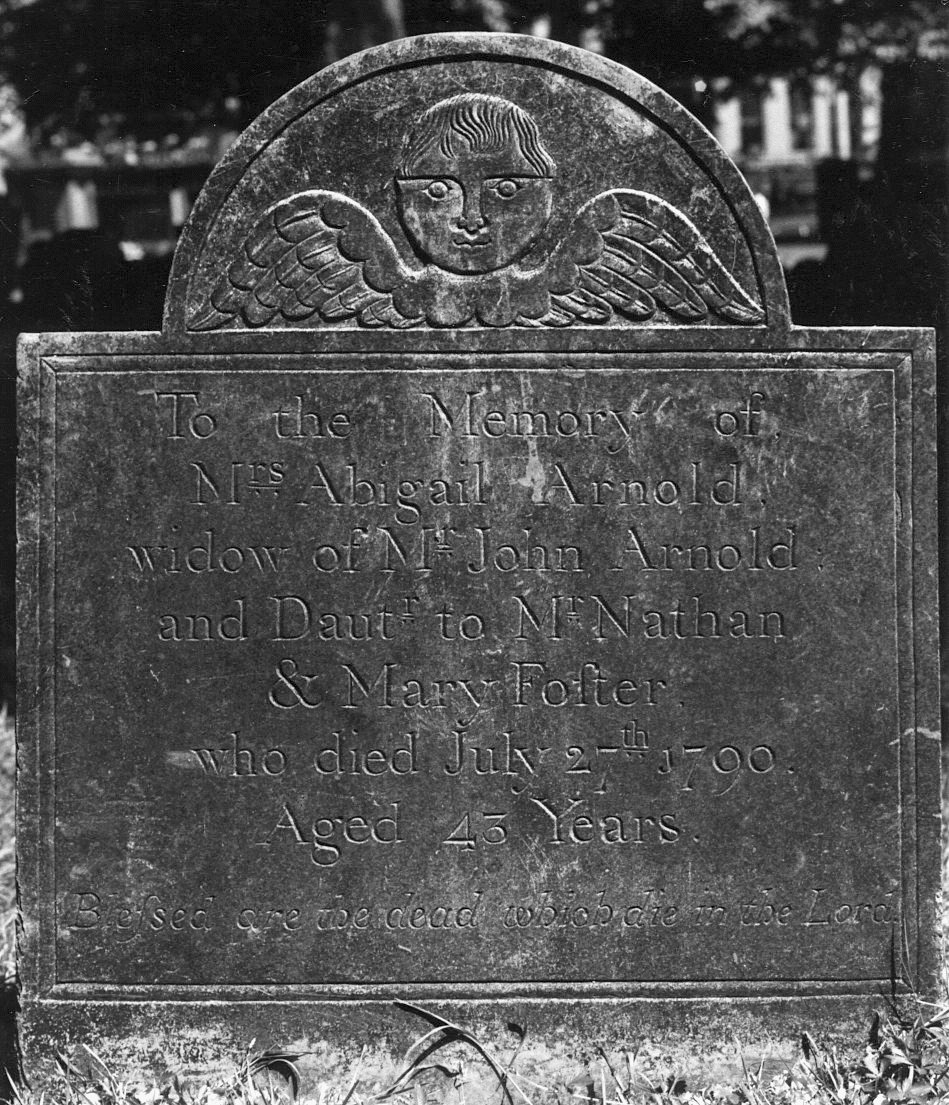 To the Memory of,
Mrs Abigail Arnold,
widow of Mr John Arnold:
and Dautr to Mr Nathan
& Mary Foſter,
who died July 27th 1790.
Aged 43 Years.
Bleſsed are the dead which die in the Lord.